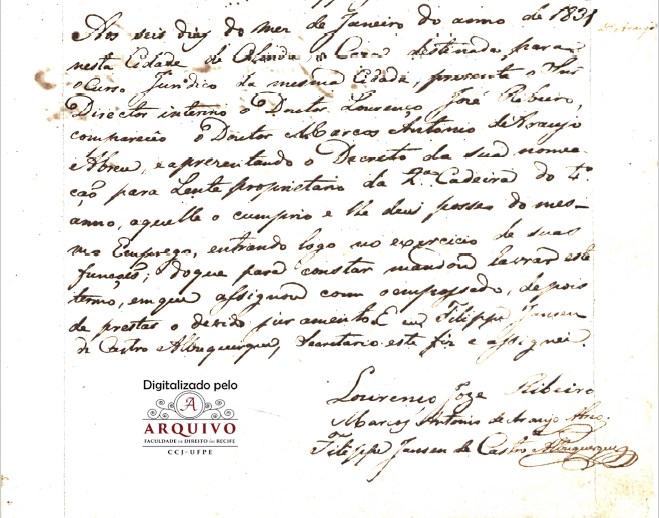 Aos seis dias do mez de Janeiro do anno de 1831
nesta Cidade de Olinda, e Caza destinada para
o Curso Juridico da mesma Cidade, presente o Snr
Director interino o Doutor Lourenço José Ribeiro,
compareceo o Doutor Marcos Antonio de Araujo
e Abreu, e aprezentando o Decreto da sua nomea
ção para Lente proprietario da 2ª Cadeira do 4º
anno, aquelle o cumprio e lhe deu posse do mes-
mo Emprego, entrando logo no exercicio de suas
funções; do que para constar mandou lavrar este
termo, em que assignou com o empossado, depois
de prestar o devido juramento. E eu Filippe Jansen
de Castro e Albuquerque, Secretario este fiz e assignei.
Lourenço Joze Ribeiro
Marcos Antonio de Araujo Abreo.
Filippe Jansen de Castro e Albuquerque
Digitalizado pelo
A
ARQUIVO
FACULDADE DE DIREITO DO RECIFE
CCJ-UFPE